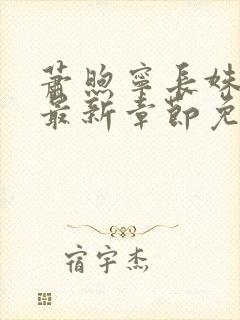 萧煦宁长姝
最新章節免
宿宇杰